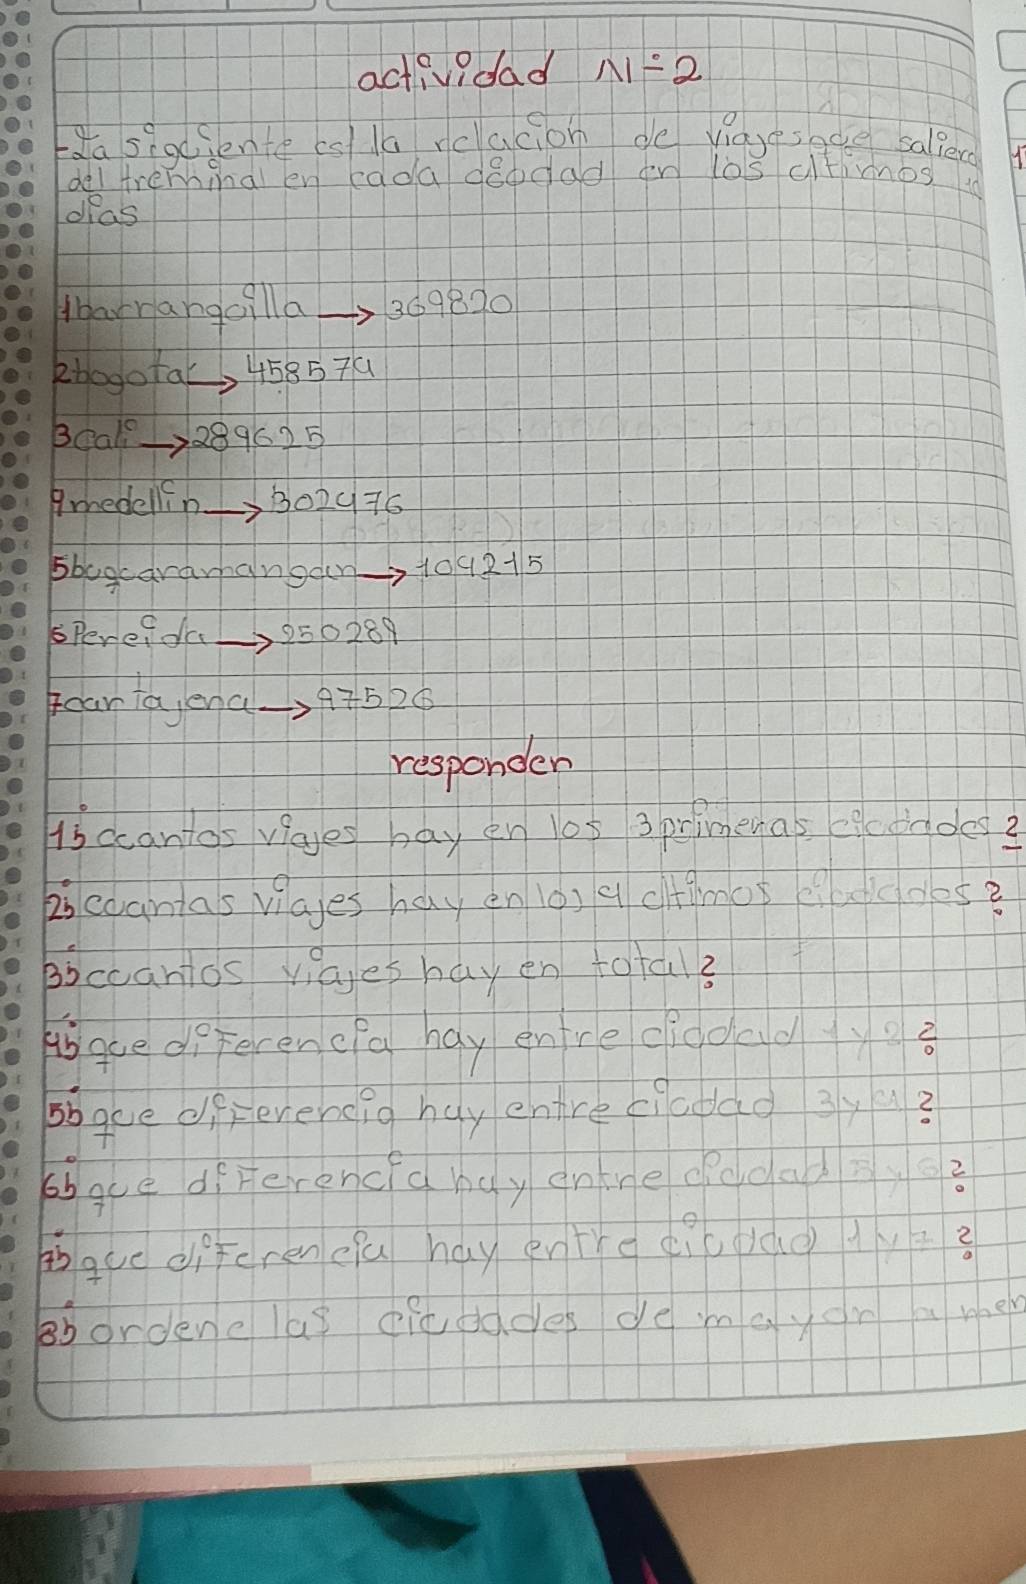 actividad N÷2
La sigciente est la relacion de viajesque salierc
del treminal en cada ciodad en los cltimos
dias
1barranqcilla → 369820
2bogota → 458574
3cali → 289625
4medellin → 302476
5bucaramangan → 104215
6Pereida → 250289
7cartajena → 97526
responden
1ò ccantos viajes hay en los 3primeras cicdades?
2ò ccantas viajes hay en los 4 cltimos cicdades?
3ò ccantos viajes hay en total?
4ò qce diferencia hay entre ciodad 1y2?
5ò qce diferencia hay entre cicdad 3y4?
6ò qce diferencia hay entre cicdad 5y6?
7ò qce diferencia hay entre cicdad 1y7?
8ò ordene las cicdades de mayor a men